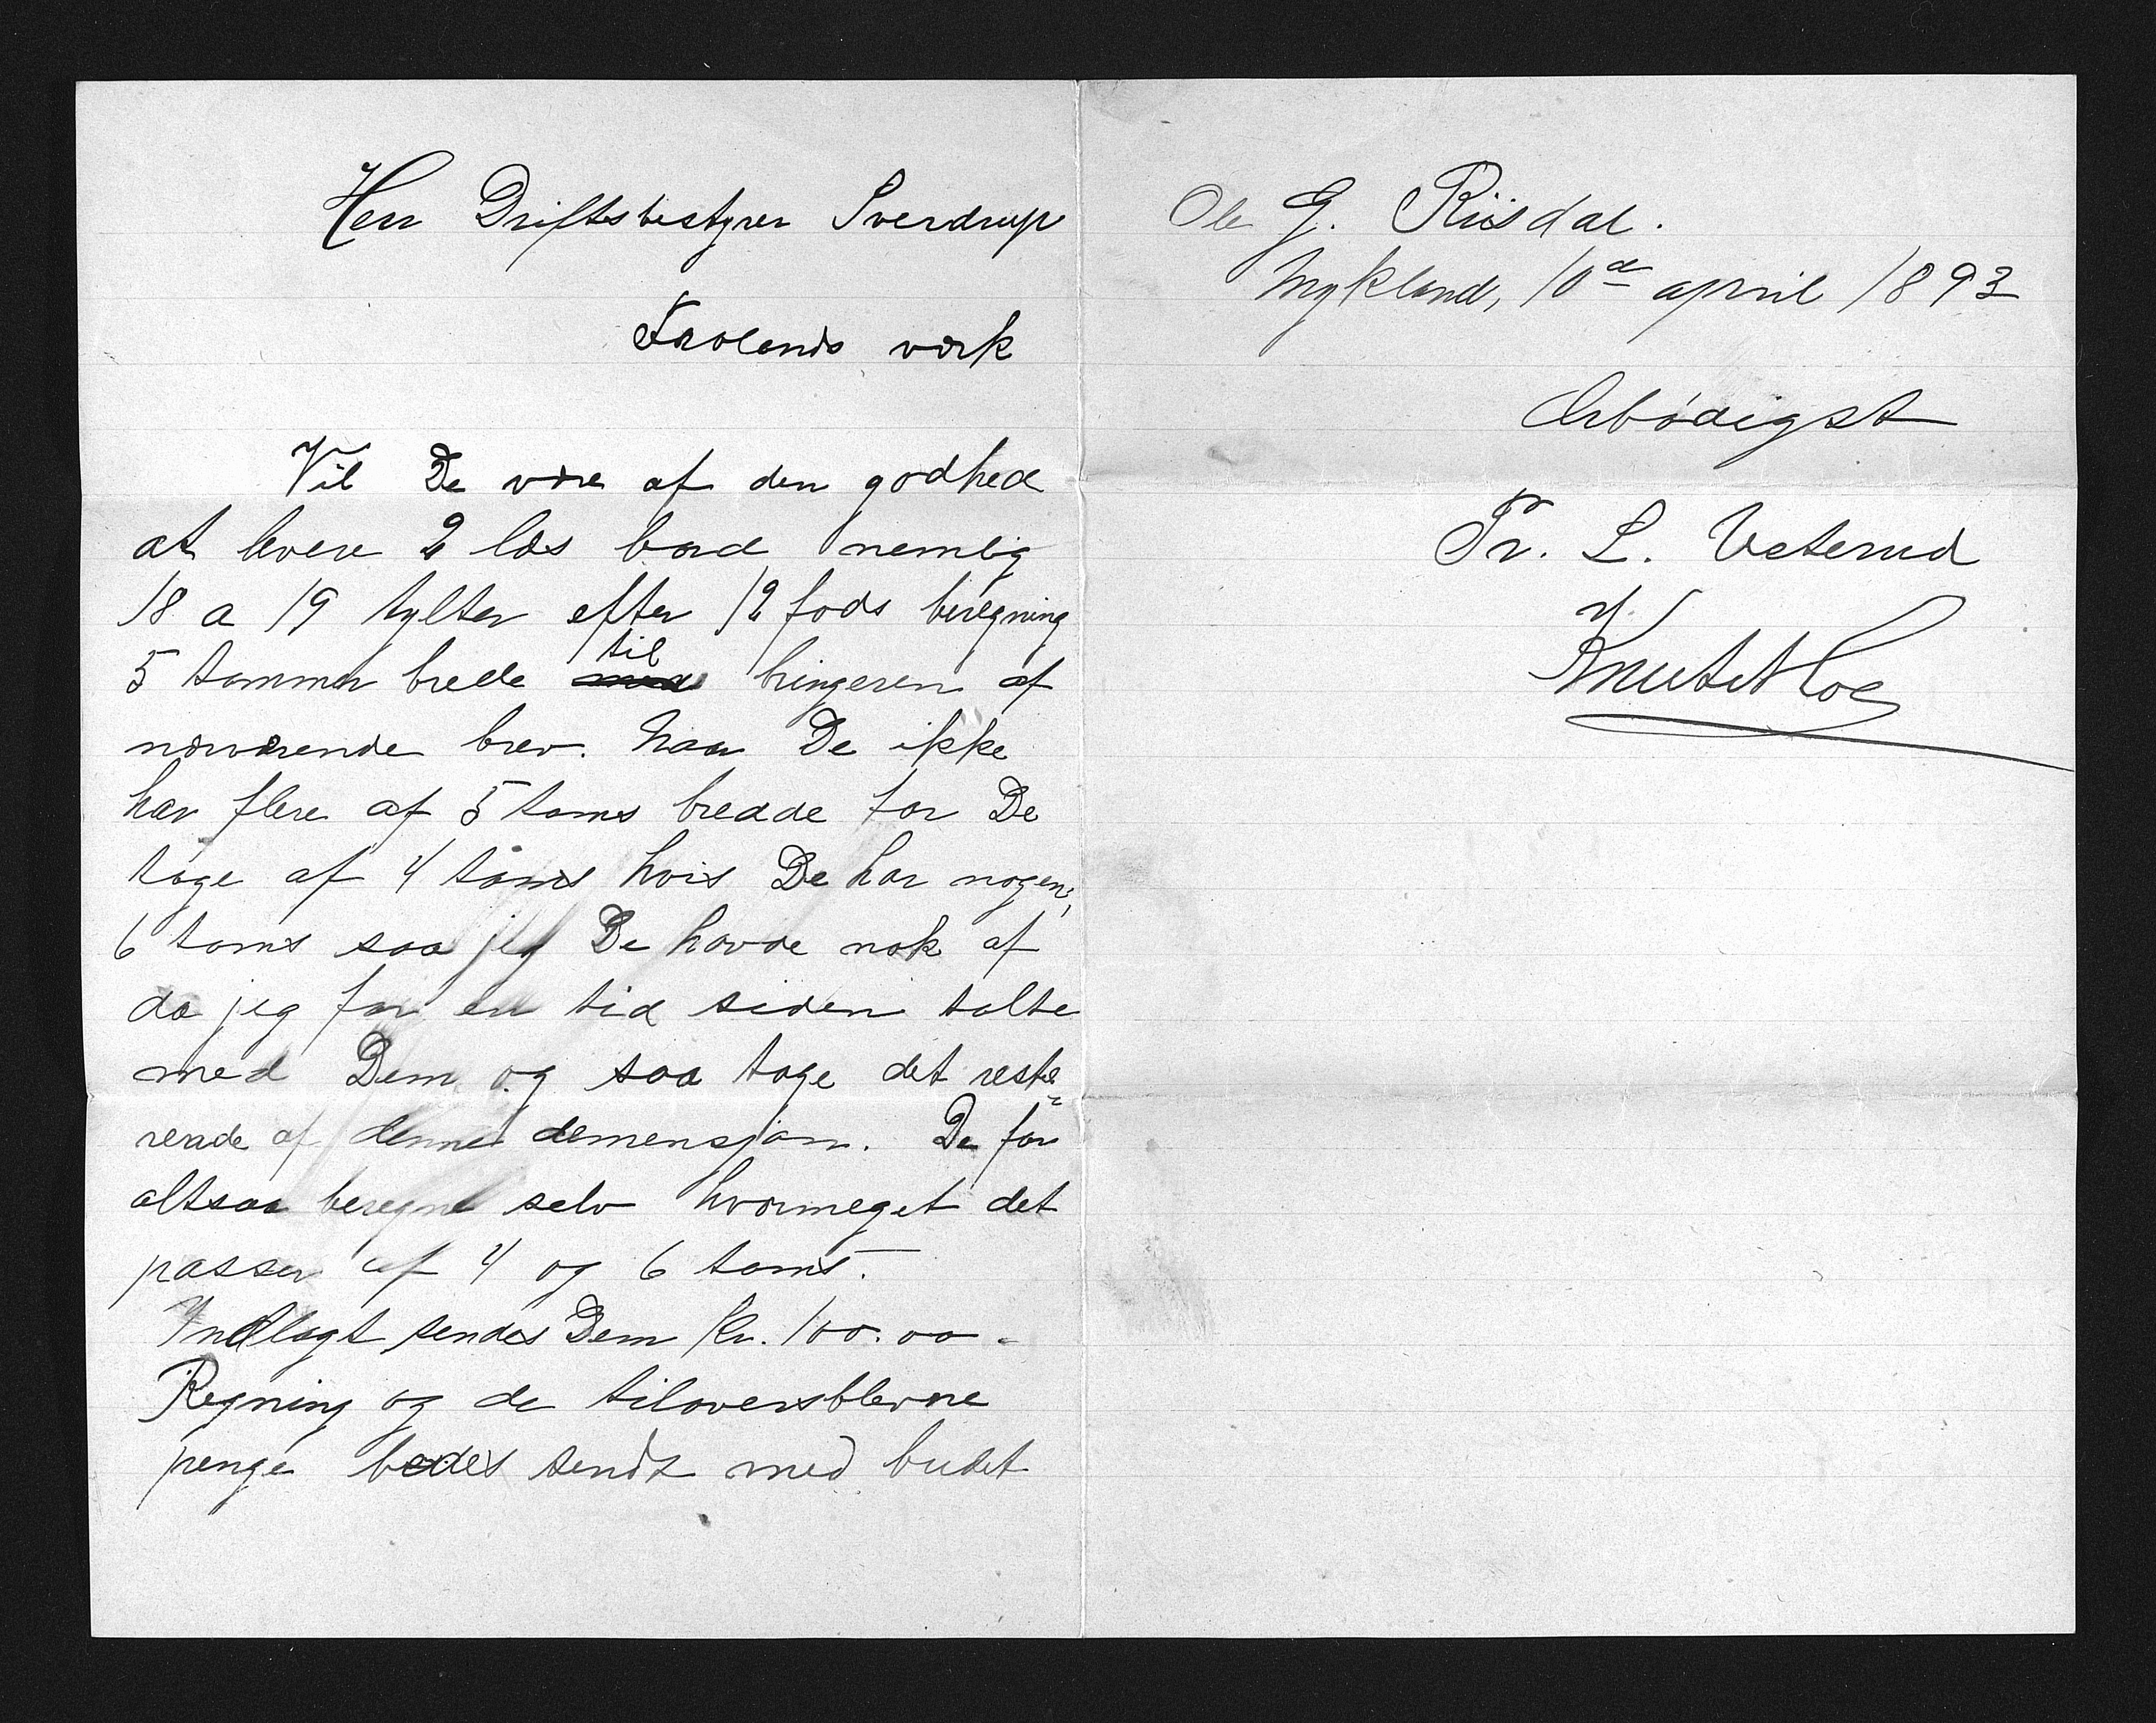 Herr Driftsbestyrer Sverdrup
Frolands værk
Vil De være af den godhed
at levere 2 læs bord nemlig
18 a 19 tylter efter 12 fods beregning
5 tommer brede til bringeren af
nærværende brev. Naar De ikke
har flere af 5 toms bredde for De
tage af 4 toms hvis De har nogen,
6 toms saa jeg De havde nok af
da jeg for en tid siden talte
med Dem og saa tage det reste=
rende af denne demensjon. De for
altsaa beregne selv hvormeget det
passer af 4 og 6 toms.
Indlagt sendes Dem Kr. 100.00 -
Regning og de tiloversblevne
penge bedes sendt med budet
Ole G. Riisdal.
Mykland, 10de april 1893
Ærbødigst
Pr. L. Veterud
v/
Knut